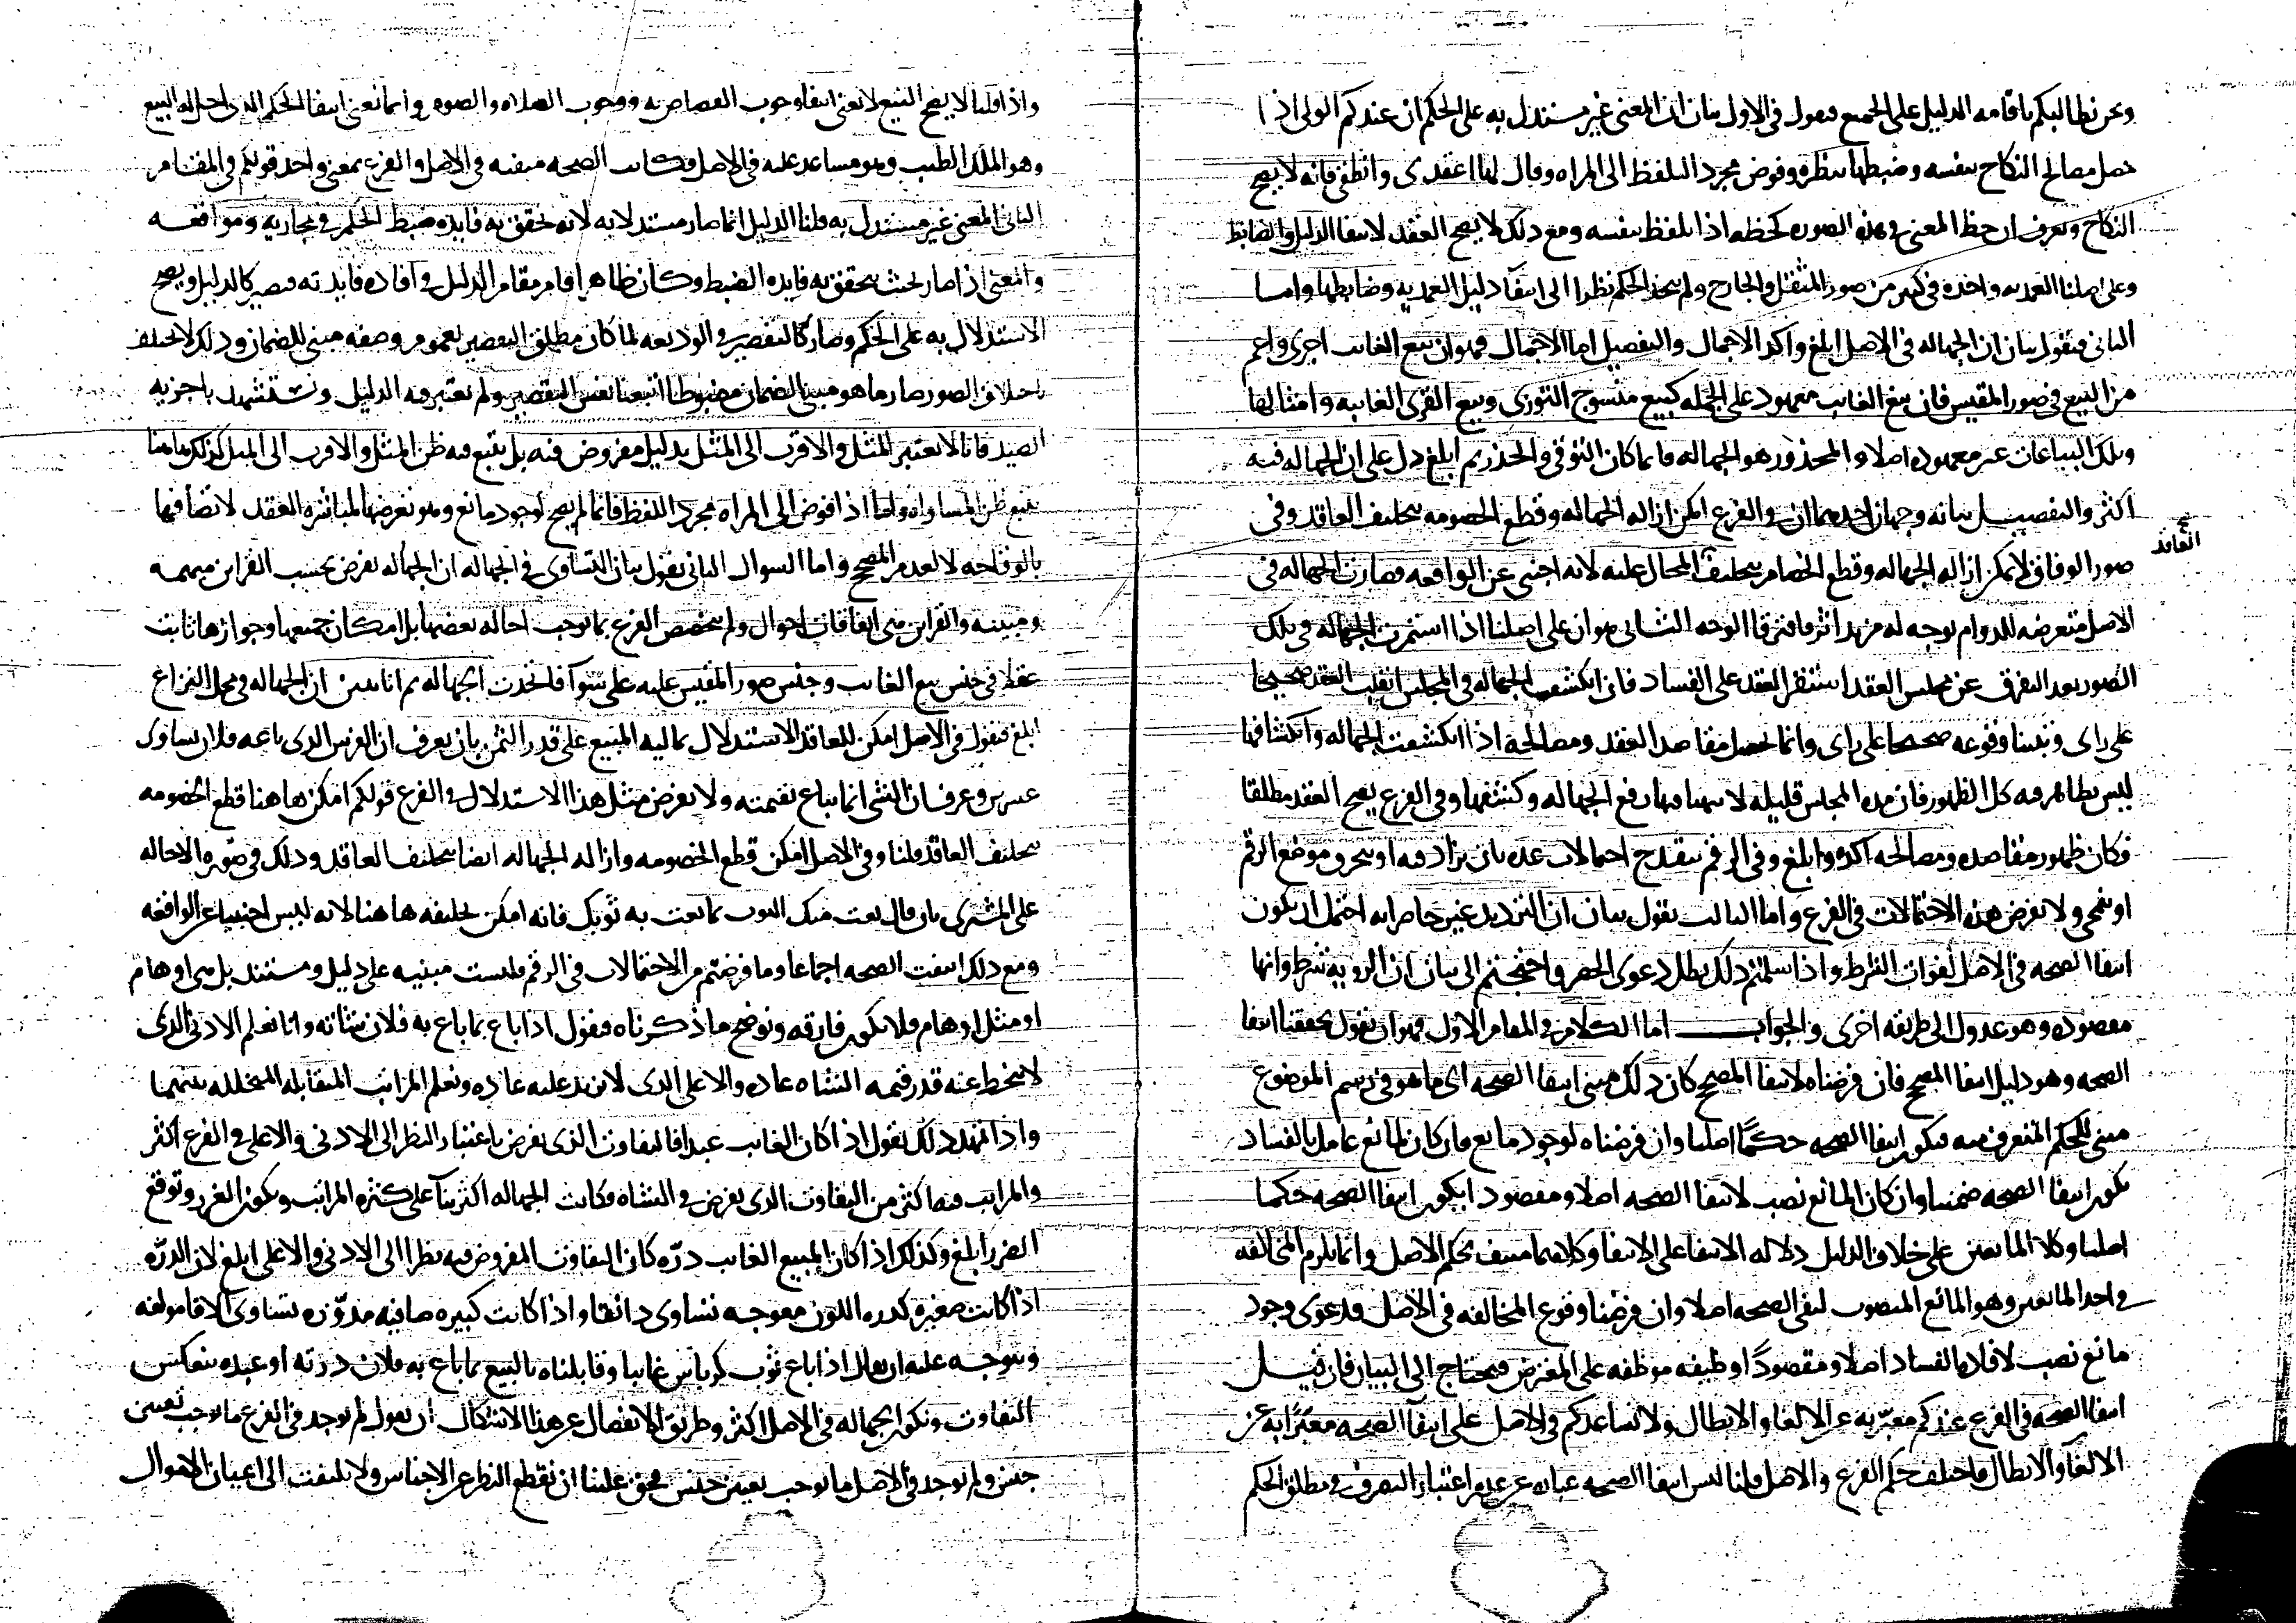 ونحن نطالبكم باقامه الدليل على الجميع فنقول في الاول بيان ان المعنى غير مستدل به على الحكم ان عندكم الولي اذا
حصل مصالح النكاح بنفسه وضبطها بنظره وفوض مجرد التلفظ الى المراه وقال لها اعقدي وانطقي فانه لا يصح
النكاح ونعرف ان حظ المعنى في هذه الصوره كحظه اذا تلفظ بنفسه ومع ذلك لا يصح العقد لانتفا الدليل والضابط
وعلى اصلنا العمديه واحده في كثير من صور المثقل والجارح ولم يتحد الحكم نظرا الى انتفا دليل العمديه وضابطها واما
الثاني فنقول بيان ان الجهاله في الاصل ابلغ واكد الاجمال والتفصيل اما الاجمال فهو ان بيع الغائب اجرى واعم
من البيع في صور المقيس فان بيع الغائب معهود على الجمله كبيع منسوج التوزي وبيع القرى الغائبه وامثالها
وتلك البياعات غير معهوده اصلا والمحذور هو الجهاله فلما كان التوقي والحذر ثم ابلغ دل على ان الجهاله فيه
اكثر والتفصيل بيانه وجهان احدهما ان في الفرع امكن ازاله الجهاله وقطع الخصومه بتحليف العاقد وفي
العاقد
صور الوفاق لا يمكن ازاله الجهاله وقطع الخصام بتحليف المحال عليه لانه اجنبي عن الواقعه فصارت الجهاله في
الاصل متعرضه للدوام فوجه له مزيد اثر فافترقا الوجه الثاني هو ان على اصلنا اذا استمرت الجهاله في تلك
الصور بعد التفرق عن مجلس العقد استقر العقد على الفساد فان انكشفت الجهاله في المجلس انقلب العقد صحيحا
على راي وتبينا وقوعه صحيحا على راي وانما تحصل مقاصد العقد ومصالحه اذا انكشفت الجهاله وانكشافها
ليس بظاهر فيه كل الظهور فان مده المجلس قليله لا سيما فيها رفع الجهاله وكشفها وفي الفرع يصح العقد مطلقا
فكان ظهور مقاصده ومصالحه اكد وابلغ وفي الرقم ينقدح احتمالات عده بان يزاد فيه او يحرق موضع الرقم
او يمحى ولا تفرض هذه الاحتمالات في الفرع واما الثالث نقول بيان ان الترديد غير حاصر انه احتمل ان يكون
انتفا الصحه في الاصل لفوات الشرط واذا سلمتم ذلك بطل دعوى الحصر واحتجتم الى بيان ان الرويه شرط وانها
مقصوده وهو عدول الى طريقه اخرى والجواب اما الكلام في المقام الاول فهو ان نقول تحققنا انتفا
الصحه وهو دليل انتفا المصحح فان فرضناه لانتفا المصحح كان ذلك مبنى انتفا الصحه اي ما هو في رسم الموضوع
مبنى للحكم المتعرف منه فيكون انتفا الصحه حكما اصليا وان فرضناه لوجود مانع فان كان المانع عامل بالفساد
يكون انتفا الصحه ضمنيا وان كان المانع نصب لانتفا الصحه اصلا ومقصودا يكون انتفا الصحه حكما
اصليا وكلا المانعين على خلاف الدليل دلاله الانتفا على الانتفا وكلاهما منتف بحكم الاصل وانما يلزم المخالفه
في احد المانعين وهو المانع المنصوب لنفي الصحه اصلا وان فرضنا وقوع المخالفه في الاصل فدعوى وجود
مانع نصب لافاده الفساد اصلا ومقصودا وظيفه موظفه على المعترض فيحتاج الى البيان فان قيل
انتفا الصحه في الفرع عندكم معبر به عن الالغا والابطال ولا نساعدكم في الاصل على انتفا الصحه معبرا به عن
الالغا والابطال فاختلف حكم الفرع والاصل قلنا ليس انتفا الصحه عباره عن عدم اعتبار التصرف في مطلق الحكم
واذا قلنا لا يصح البيع لا نعني انتفا وجوب القصاص به ووجوب الصلاه والصوم وانما نعني انتفا الحكم الذي احل له البيع
وهو الملك الطيب وهو مساعد عليه في الاصل فكانت الصحه منفيه في الاصل والفرع بمعنى واحد قولكم في المقام
الثاني المعنى غير مستدل به قلنا الدليل انما صار مستدلا به لانه تحقق به فايده ضبط الحكم في مجاريه ومواقعه
والمعنى اذا صار بحيث يتحقق به فايده الضبط وكان ظاهرا قام مقام الدليل في افاده فايدته فيصير كالدليل ويصح
الاستدلال به على الحكم وصار كالتقصير في الوديعه لما كان مطلق التقصير بعموم وصفه مبنى للضمان وذلك لا يختلف
باختلاف الصور صار ما هو مبنى الضمان مضبوطا اتبعنا نفس التقصير ولم نعتبر فيه الدليل ونستشهد باجزيه
الصيد فانا لا نعتبر المثل والاقرب الى المثل بدليل مفروض فيه بل نتبع فيه ظن المثل والاقرب الى المثل كذلك هاهنا
نتبع ظن المساواه واما اذا فوض الى المراه مجرد اللفظ فانما لم يصح لوجود مانع وهو تعرضها لمباشره العقد لاتصافها
بالوقاحه لا لعدم المصحح واما السوال الثاني نقول بيان التساوي في الجهاله ان الجهاله تفرض بحسب القراين مبهمه
ومبينه والقراين هي اتفاقات احوال ولم يخصص الفرع بما توجب احاله بعضها بل امكان جميعها وجوازها ثابت
عقلا في جنس بيع الغايب وجنس صور المقيس عليه على سوا فاتحدت الجهاله ثم انا نبين ان الجهاله في محل النزاع
ابلغ فنقول في الاصل امكن للعاقد الاستدلال بماليه المبيع على قدر الثمن بان يعرف ان الفرس الذي باعه فلان يساوي
عشرين وعرف ان الشي انما يباع بقيمته ولا يفرض مثل هذا الاستدلال في الفرع قولكم امكن هاهنا قطع الخصومه
بتحليف العاقد قلنا وفي الاصل امكن قطع الخصومه وازاله الجهاله ايضا بتحليف العاقد وذلك في صوره الاحاله
على المشتري بان قال بعت منك الثوب بما بعت به ثوبك فانه امكن تحليفه هاهنا لانه ليس اجنبيا عن الواقعه
ومع ذلك انتفت الصحه اجماعا وما فرضتم من الاحتمالات في الرقم فليست مبنيه على دليل ومستند بل هي اوهام
او مثل اوهام فلا تكون فارقه ونوضح ما ذكرناه فنقول اذا باع بما باع به فلان شاته وانا نعلم الادنى الذي
لا ينحط عنه قدر قيمه الشاه عاده والاعلى الذي لا يزيد عليه عاده ونعلم المراتب المتقابله المتخلله بينهما
واذا تمهد ذلك نقول اذا كان الغايب عبدا فالتفاوت الذي يفرض باعتبار النظر الى الادنى والاعلى في الفرع اكثر
والمراتب فيه اكثر من التفاوت الذي يفرض في الشاه فكانت الجهاله اكثر بنا على كثره المراتب ويكون الغرر وتوقع
الضرر ابلغ وكذلك اذا كان المبيع الغايب دره كان التفاوت المفروض فيه نظرا الى الادنى والاعلى ابلغ لان الدره
اذا كانت صغيره كدره اللون معوجه تساوي دانقا واذا كانت كبيره صافيه مدوره تساوي الافا مولفه
ويتوجه عليه ان يقال اذا باع ثوب كرباس غايبا وقابلناه بالبيع بما باع به فلان درته او عبده ينعكس
التفاوت وتكون الجهاله في الاصل اكثر وطريق الانفصال عن هذا الاشكال ان نقول لم يوجد في الفرع ما يوجب تعيين
جنس ولم يوجد في الاصل ما يوجب تعيين جنس فحق علينا ان نقطع النظر عن الاجناس ولا نلتفت الى اعيان الاموال